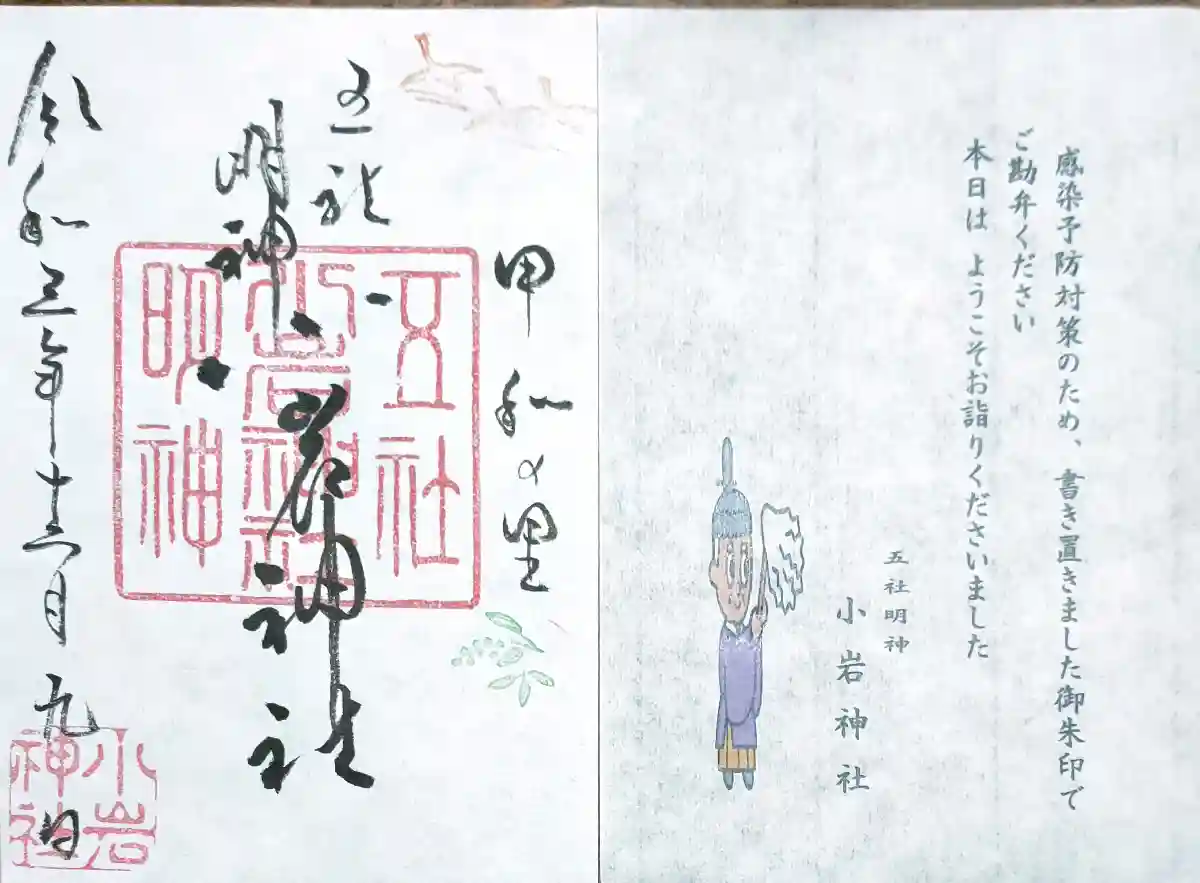 感染予防対策のため、書き置きました御朱印で
ご勘弁ください
本日は ようこそお詣りくださいました
五社明神
小岩神社
甲和の里
五社
明神
小岩神社
五社
小岩神社
明神
令和三年十二月九日
小岩
神社